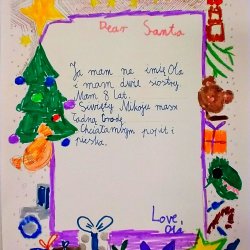 Dear Santa
Ja mam na imię Ola
i mam dwie siostry
Mam 8 lat.
Święty Mikołaju masz
ładną brodę.
Chciałambym popit i
pieska.
Love,
Ola